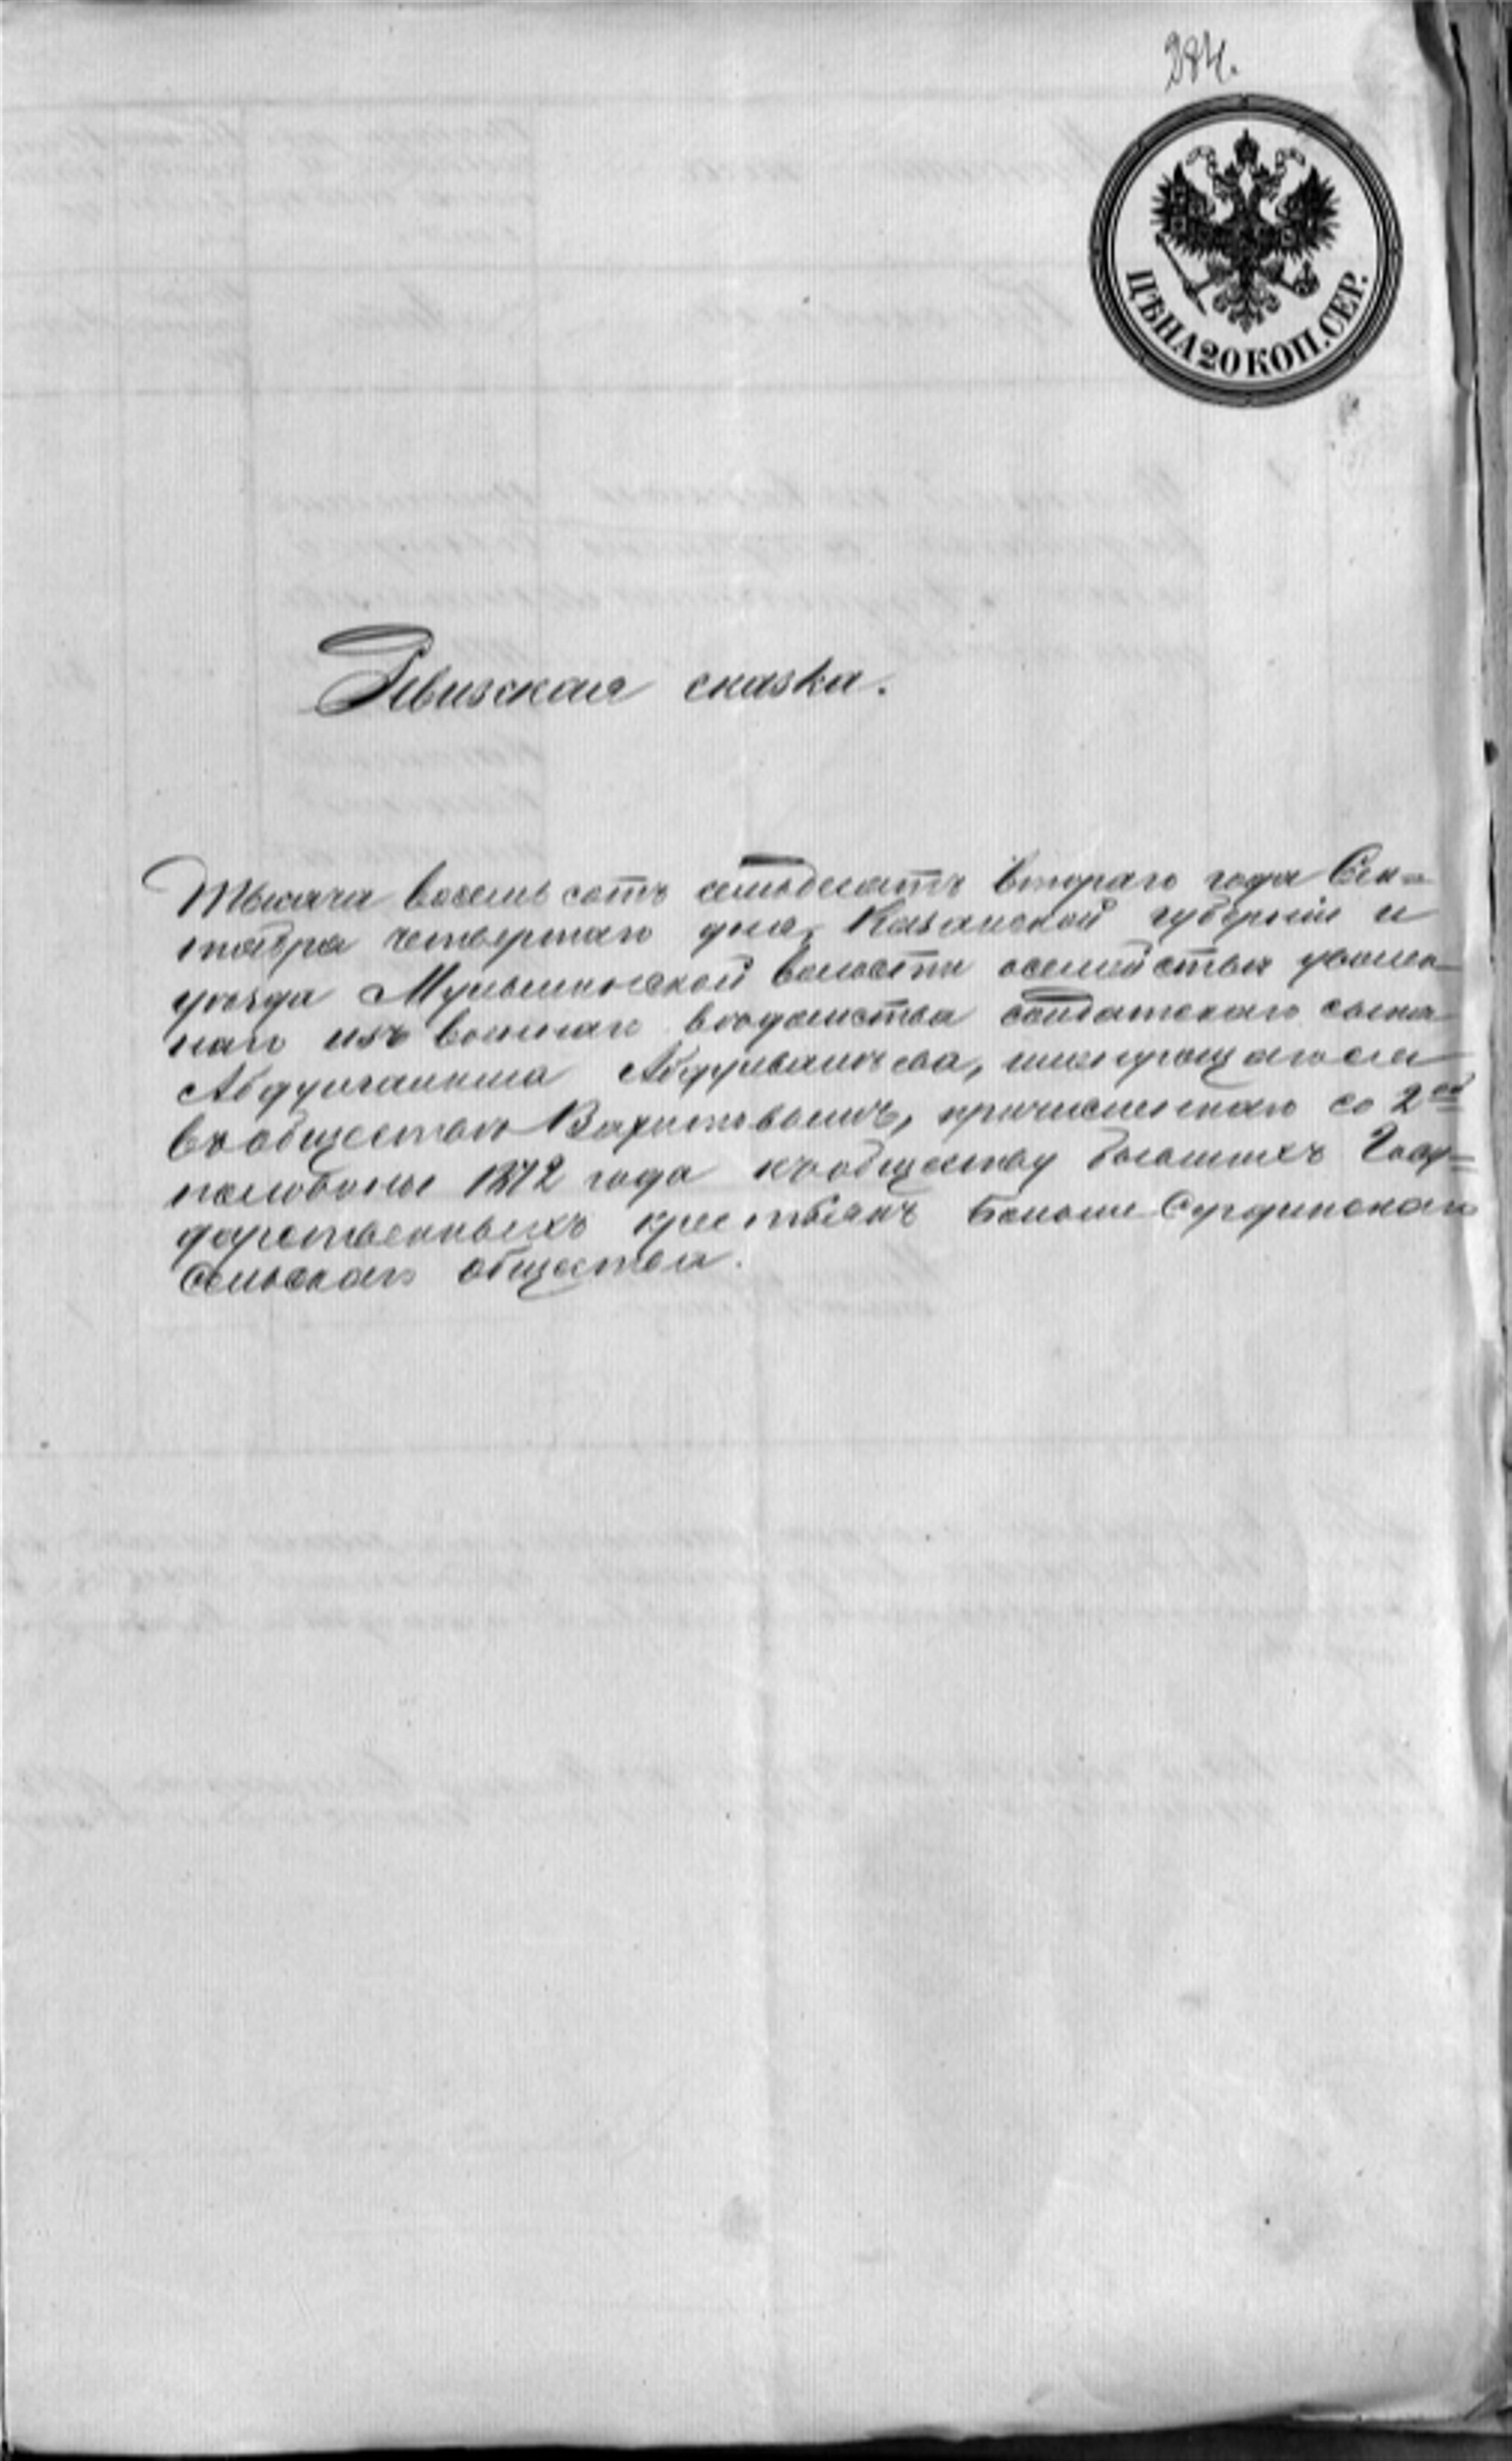 284.
ЦѢНА 20 КОП. СЕР.
Ревизская сказка.
Тысяча восемь сотъ семьдесятъ втораго года Сен-
тября четвертаго дня, Казанской губерніи и
уѣзда Мульминской волости о семействѣ уволен-
наго изъ военнаго вѣдомства солдатскаго сына
именующагося
въ обществѣ Вахитовымъ, причисленнаго со 2ой
половины 1872 года къ обществу бывшихъ Госу-
дарственныхъ крестьянъ Больше
сельскаго общества.